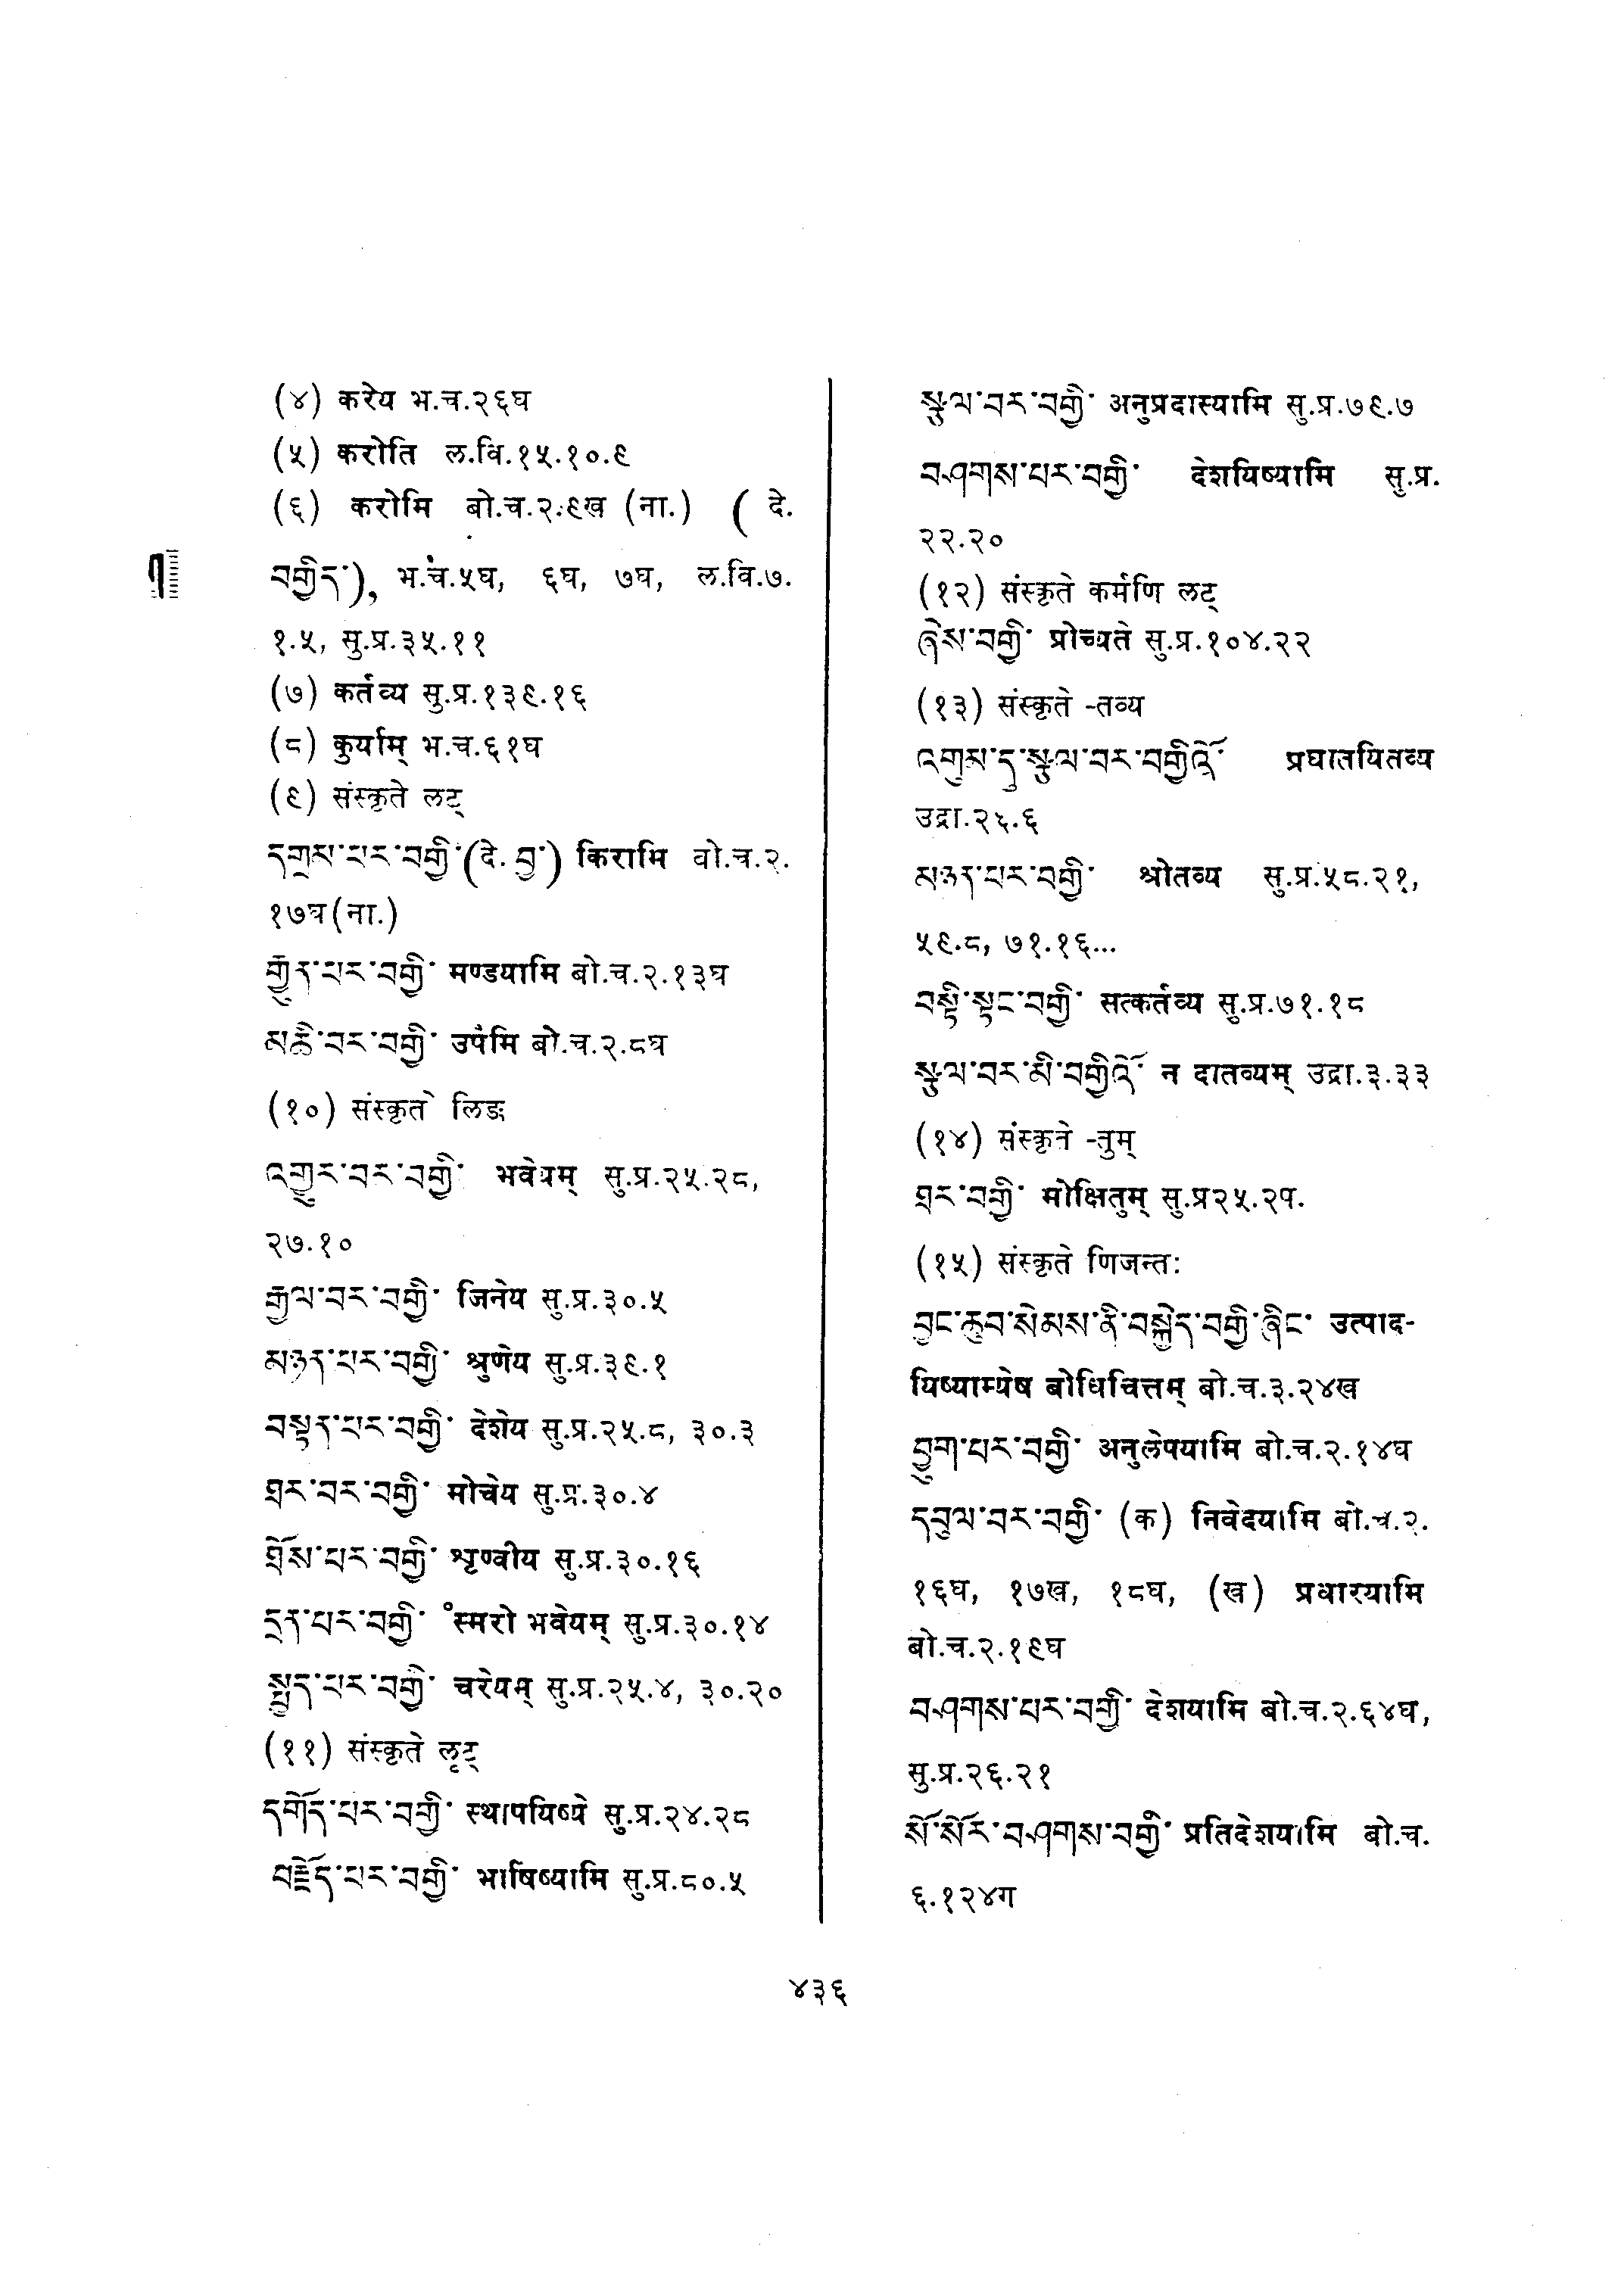 (४) करेय भ.च.२६घ
(५) करोति ल.वि.१५.१०.९
(६) करोमि बो.च.२.९ख (ना.) ( दे.
བགྱིད་), भ.च.५घ, ६घ, ७घ, ल.वि.७.
१.५, सु.प्र.३५.११
(७) कर्तव्य सु.प्र.१३९.१६
(८) कुर्याम् भ.च.६१घ
(९) संस्कृते लट्
དགྲམ་པར་བགྱི་(दे. བྱ་) किरामि बो.च.२.
१७घ(ना.)
བགྱི་ मण्डयामि बो.च.२.१३घ
མཆི་བར་བགྱི་ उपैमि बो.च.२.८घ
(१०) संस्कृते लिङ
འགྱུར་བར་བགྱི་ भवेयम् सु.प्र.२५.२८,
२७.१०
རྒྱལ་བར་བགྱི་ जिनेय सु.प्र.३०.५
མཉན་པར་བགྱི་ श्रुणेय सु.प्र.३९.१
བསྟན་པར་བགྱི་ देशेय सु.प्र.२५.८, ३०.३
ཐར་བར་བགྱི་ मोचेय सु.प्र.३०.४
ཐོས་པར་བགྱི་ शृण्वीय सु.प्र.३०.१६
དྲན་པར་བགྱི་ °स्मरो भवेयम् सु.प्र.३०.१४
སྤྱད་པར་བགྱི་ चरेयम् सु.प्र.२५.४, ३०.२०
(११) संस्कृते लृट्
དགོད་པར་བགྱི་ स्थापयिष्ये सु.प्र.२४.२८
བརྗོད་པར་བགྱི་ भाषिष्यामि सु.प्र.८०.५
སྩལ་བར་བགྱི་ अनुप्रदास्यामि सु.प्र.७९.७
བཤགས་པར་བགྱི་ देशयिष्यामि सु.प्र.
२२.२०
(१२) संस्कृते कर्मणि लट्
ཞེས་བགྱི་ प्रोच्यते सु.प्र.१०४.२२
(१३) संस्कृते -तव्य
འགུམ་དུ་སྩལ་བར་བགྱིའོ་ प्रघातयितव्य
उद्रा.२५.६
མཉན་པར་བགྱི་ श्रोतव्य सु.प्र.५८.२१,
५९.८, ७१.१६...
བསྟི་སྟང་བགྱི་ सत्कर्तव्य सु.प्र.७१.१८
སྩལ་བར་མི་བགྱིའོ་ न दातव्यम् उद्रा.३.३३
(१४) संस्कृते -तुम्
ཐར་བགྱི་ मोक्षितुम् सु.प्र२५.२१.
(१५) संस्कृते णिजन्तः
བྱང་ཆུབ་སེམས་ནི་བསྐྱེད་བགྱི་ཞིང་ उत्पाद-
यिष्याम्येष बोधिचित्तम् बो.च.३.२४ख
བྱུག་པར་བགྱི་ अनुलेपयामि बो.च.२.१४घ
དབུལ་བར་བགྱི་ (क) निवेदयामि बो.च.२.
१६घ, १७ख, १८घ, (ख) प्रधारयामि
बो.च.२.१९घ
བཤགས་པར་བགྱི་ देशयामि बो.च.२.६४घ,
सु.प्र.२६.२१
སོ་སོར་བཤགས་བགྱི་ प्रतिदेशयामि बो.च.
६.१२४ग
४३६